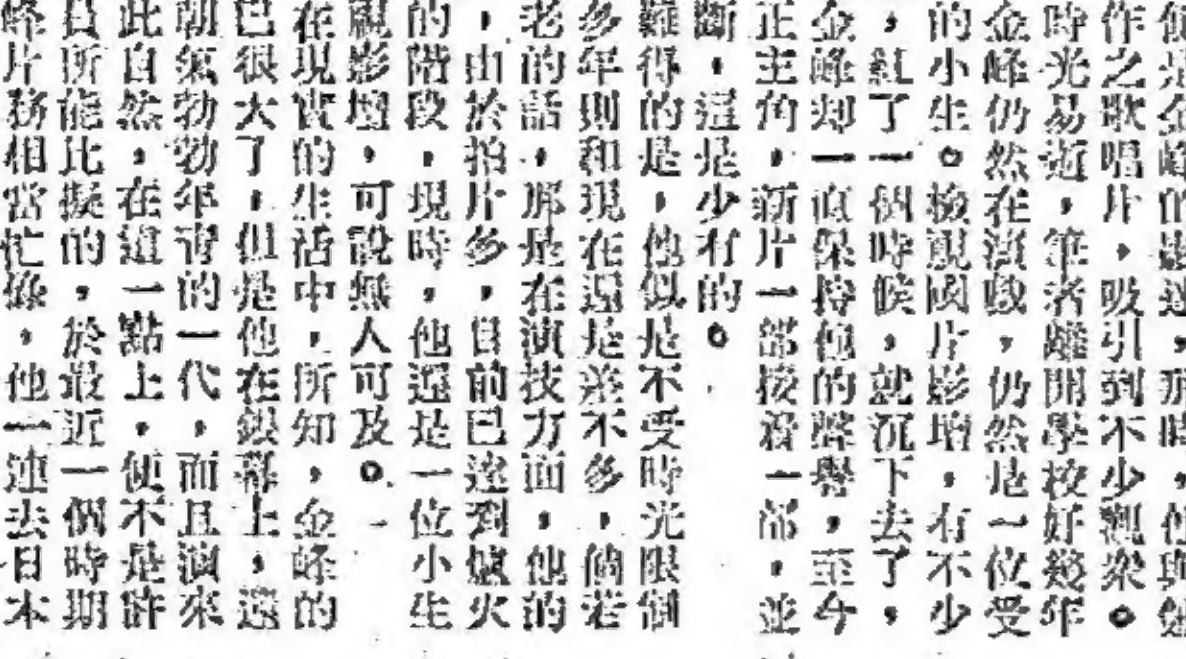 是金峰的
作之歌唱片，吸引到不少觀衆。
時光易逝，筆者離開學校好幾年
金峰仍然在演戲，仍然是一位受
的小生。檢視國片影壇，有不少
，紅了一個時候，就沉下去了，
金峰却一直保持他的聲譽，至今
正主角，新片一部接着一部，並
斷，這是少有的。
難得的是，他似是不受時光限制
多年則和現在還是差不多，倘若
老的話，那是在演技方面，他的
，由於拍片多，目前已達到爐火
的階段，現時，他還是一位小生
視影壇，可說無人可及。
在現實的生活中，所知，金峰的
已很大了，但是他在銀幕上，還
朝氣勃勃年青的一代，而且演來
此自然，在這一點上，便不是許
員所能比擬的，於最近一個時期
峰片務相當忙，他一連去日本